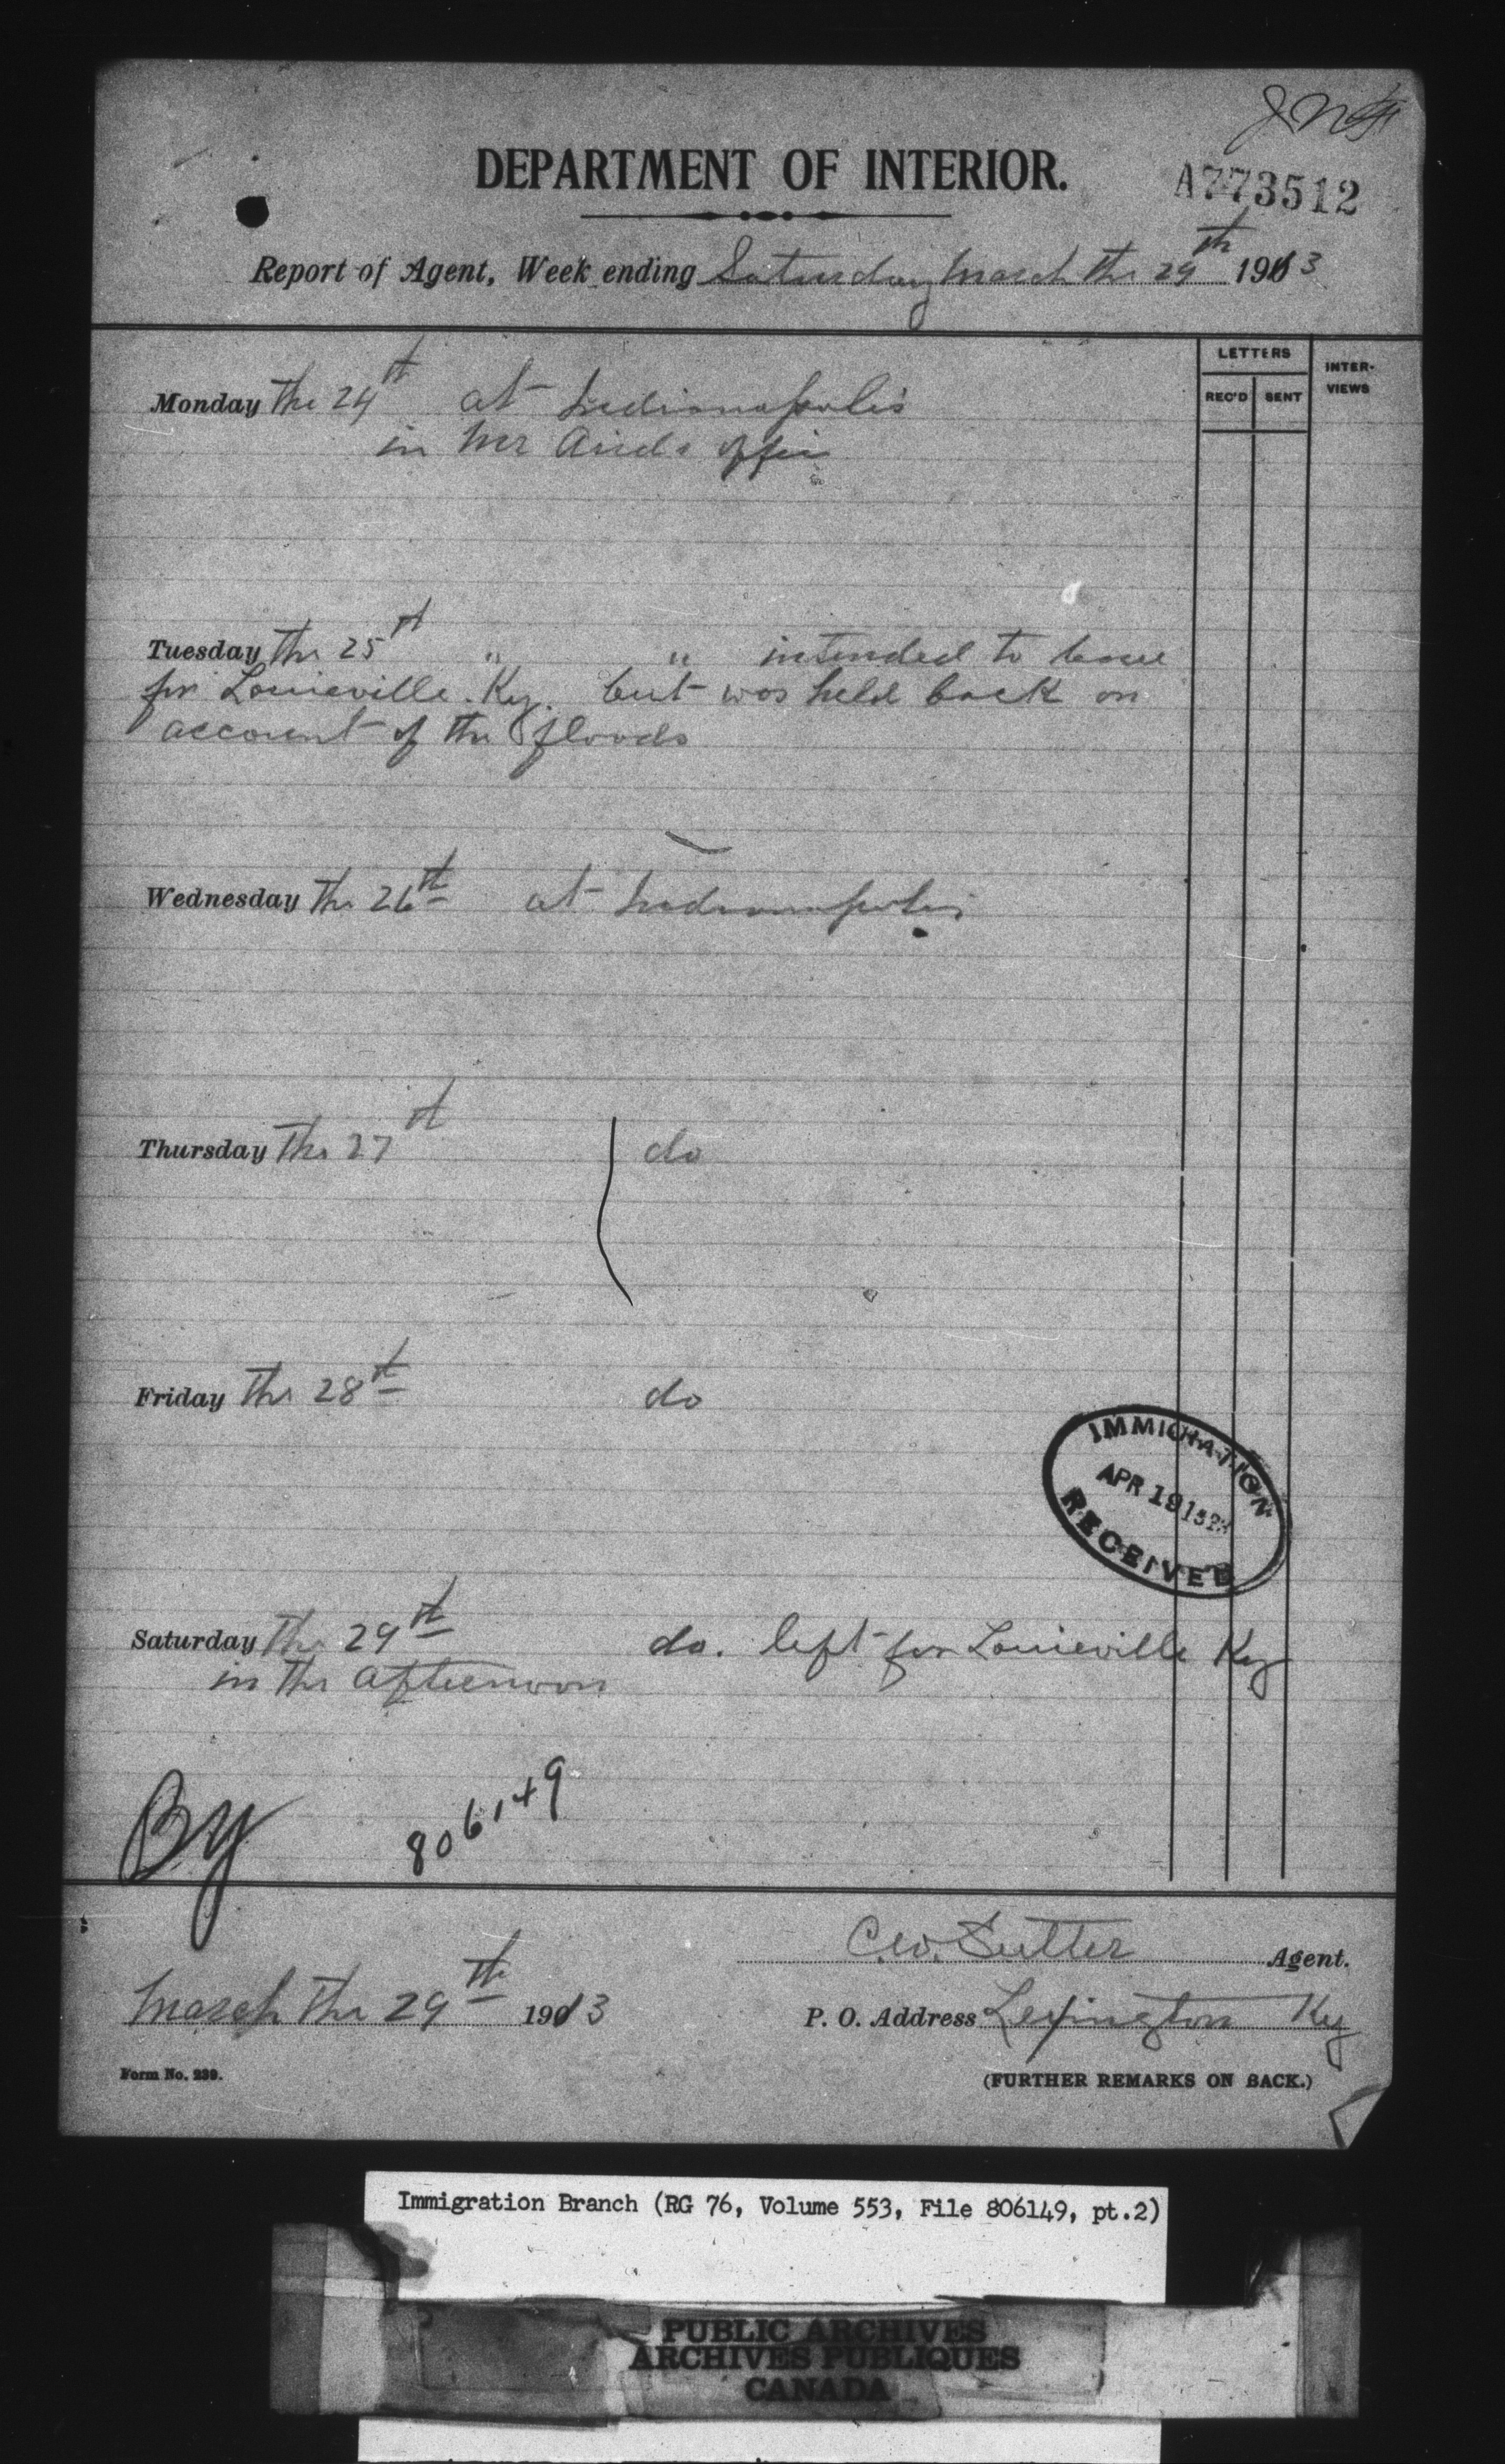 DEPARTMENT OF INTERIOR.
A773512
Report of Agent, Week ending Saturday March the 29th 1913
LETTERS
REC'D SENT
INTER-
VIEWS
Monday the 24th at Indianapolis
in Mr Airds office
Tuesday the 25th " " intended to leave
for Louieville Ky. but was held back on
account of the floods
Wednesday the 26th at Indianapolis
Thursday the 27th do
Friday the 28th do
IMMIGRATION
APR 1 1913
RECEIVED
Saturday the 29th do. left for Louieville Ky
in the afternoon
By
806149
C.W. Sutter Agent.
March the 29th 1913
P. O. Address Lexington Ky
Form No. 239.
(FURTHER REMARKS ON BACK.)
Immigration Branch (RG 76, Volume 553, File 806149, pt.2)
PUBLIC ARCHIVES
ARCHIVES PUBLIQUES
CANADA